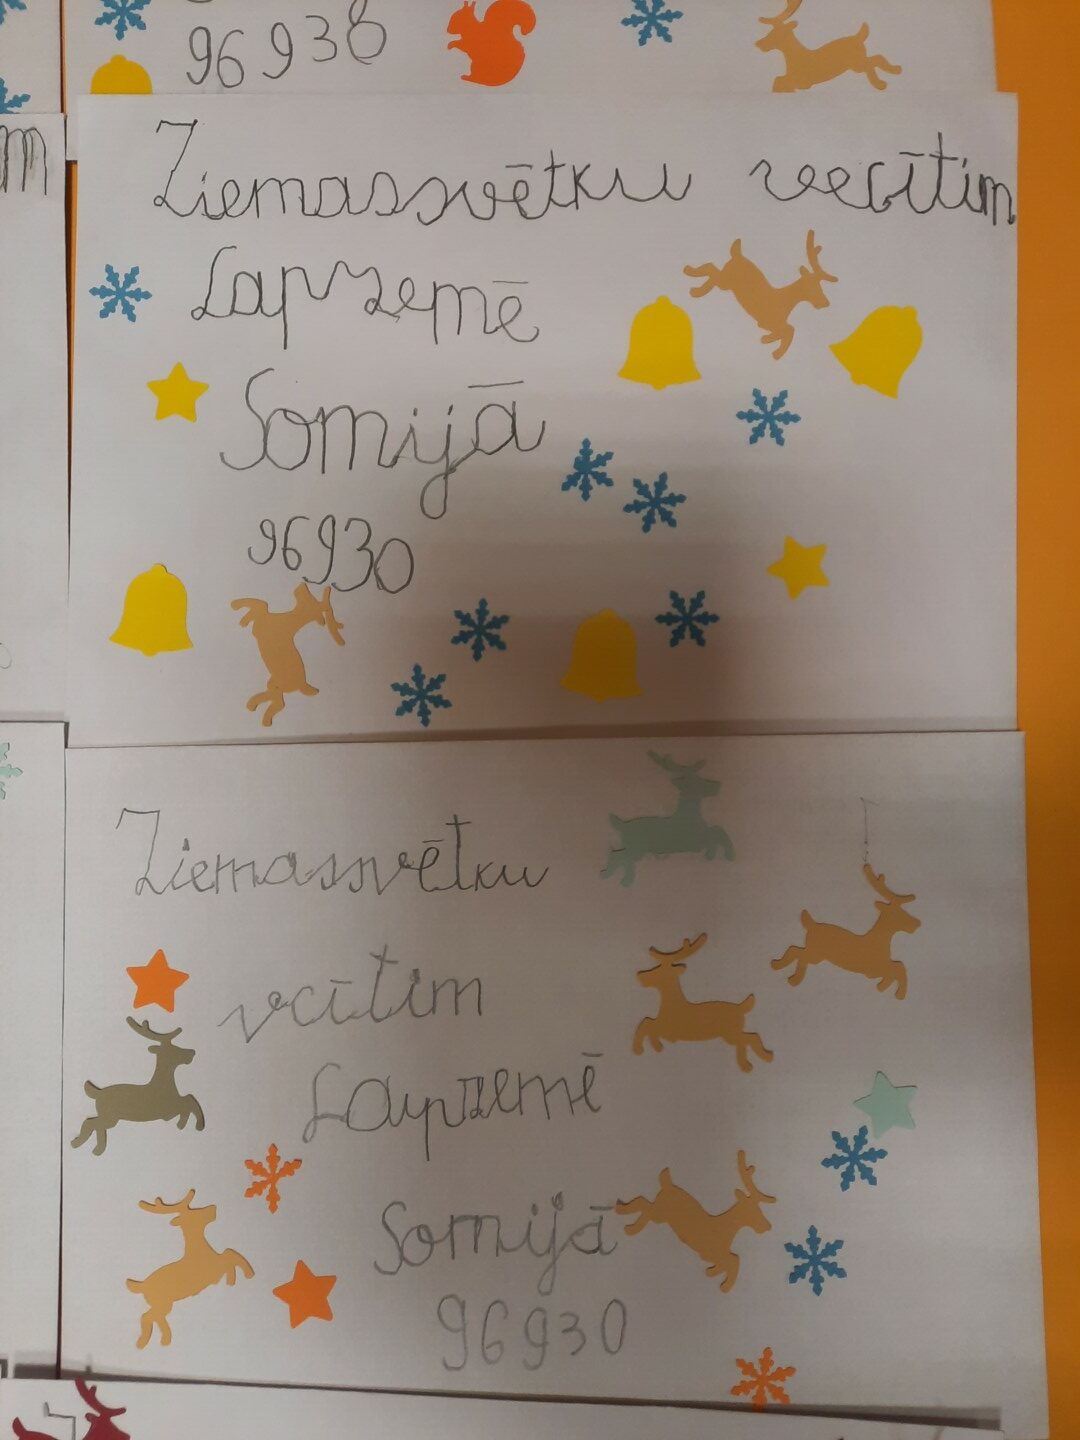 96938
m
Ziemassvētku vecītim
Lapzemē
Somijā
96930
Ziemassvētku
vcītim
Lapzemē
Somijā
96930